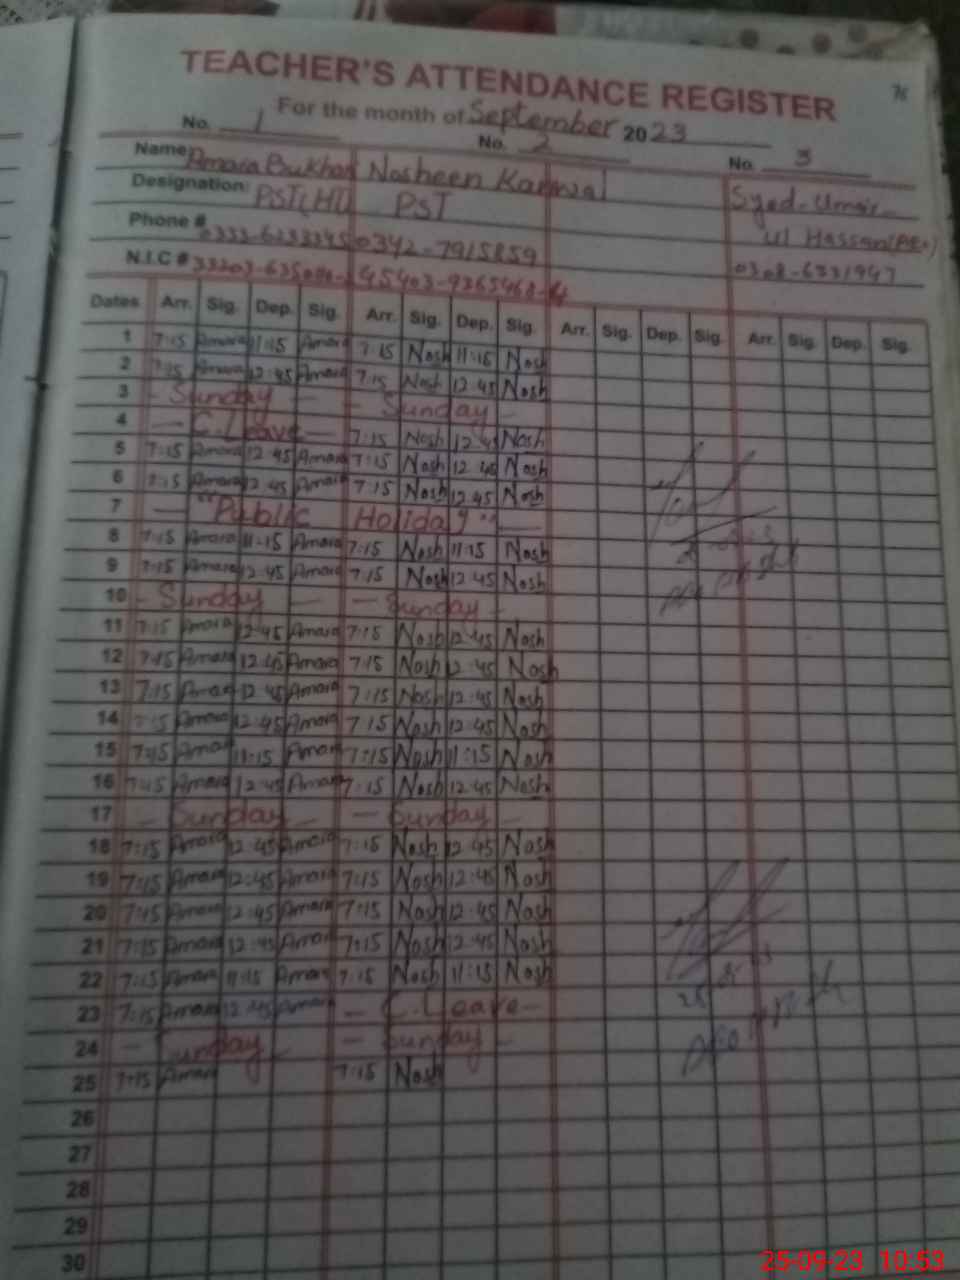 TEACHER'S ATTENDANCE REGISTER
For the month of September 2023
No. 1 No. 2 No. 3
Name: Amara Bukhari Nosheen Kanwal Syed Umair
Designation: PST, HT PST ul Hassan
Phone # 0342-7915859 0308-6331947
N.I.C # 45403-9265468-4
Dates Arr. Sig. Dep. Sig. Arr. Sig. Dep. Sig. Arr. Sig. Dep. Sig. Arr. Sig. Dep. Sig.
1 7:15 Amara 11:15 Amara 7:15 Nosh 11:15 Nosh
2 7:15 Amara 12:45 Amara 7:15 Nosh 12:45 Nosh
3 - Sunday - - Sunday -
4 - C.Leave - 7:15 Nosh 12:45 Nosh
5 7:15 Amara 12:45 Amara 7:15 Nosh 12:45 Nosh
6 7:15 Amara 12:45 Amara 7:15 Nosh 12:45 Nosh
7 - "Public Holiday" -
8 7:15 Amara 11:15 Amara 7:15 Nosh 11:15 Nosh
9 7:15 Amara 12:45 Amara 7:15 Nosh 12:45 Nosh
10 - Sunday - - Sunday -
11 7:15 Amara 12:45 Amara 7:15 Nosh 12:45 Nosh
12 7:15 Amara 12:45 Amara 7:15 Nosh 12:45 Nosh
13 7:15 Amara 12:45 Amara 7:15 Nosh 12:45 Nosh
14 7:15 Amara 12:45 Amara 7:15 Nosh 12:45 Nosh
15 7:15 Amara 11:15 Amara 7:15 Nosh 11:15 Nosh
16 7:15 Amara 12:45 Amara 7:15 Nosh 12:45 Nosh
17 - Sunday - - Sunday -
18 7:15 Amara 12:45 Amara 7:15 Nosh 12:45 Nosh
19 7:15 Amara 12:45 Amara 7:15 Nosh 12:45 Nosh
20 7:15 Amara 12:45 Amara 7:15 Nosh 12:45 Nosh
21 7:15 Amara 12:45 Amara 7:15 Nosh 12:45 Nosh
22 7:15 Amara 11:15 Amara 7:15 Nosh 11:15 Nosh
23 7:15 Amara 12:45 Amara - C.Leave -
24 - Sunday - - Sunday -
25 7:15 Amara 7:15 Nosh
26
27
28
29
30
25-09-23 10:53